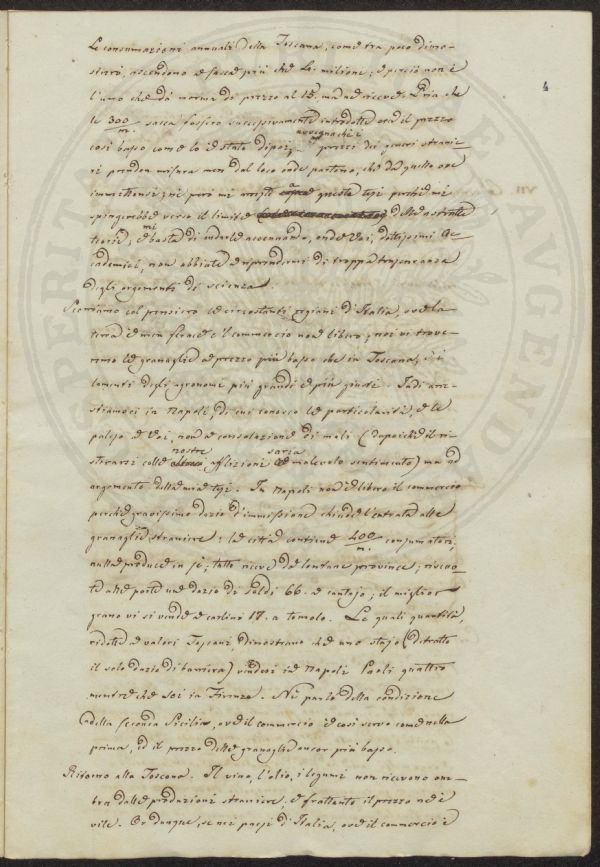 Le consumazioni annuali della Toscana, come tra poco dimo-
strerò, ascendono a sacca più che la milione; e perciò non è
4
l'uno che dà norma di prezzo al 15. ma ne riceve. Pria che
le 300/m. sacca fossero successivamente introdotte era il prezzo
così basso come lo è stato dipoi; avvegnachè i prezzi dei generi stranie-
ri prendon misura men dal loco onde partono, che da quello ove
immettonsi; nè però mi arresto a questa tesi perchè mi
spingerebbe verso il limite delle astratte
teorie; e mi basta di averle accennando, onde Voi, dottissimi Ac-
cademici, non abbiate a riprendermi di troppa trascuranza
degli argomenti di scienza.
Scorriamo col pensiero le circostanti regioni d'Italia, ove la
terra è men ferace e 'l commercio non è libero; noi vi trove-
remo le granaglie a prezzo più basso che in Toscana, e i
lamenti degli agronomi più grandi e più giusti. Indi arre-
striamoci in Napoli, di cui conosco le particolarità, e le
paleso a Voi, non a consolazione di mali (dupoichè il ri-
storarsi colle nostre afflizioni saria malevolo sentimento) ma ad
argomento della mia tesi. In Napoli non è libero il commercio
perchè gravissimo dazio d'immissione chiude l'entrata alle
granaglie straniere: la città contiene 400/m. consumatori,
nulla produce in se; tutto riceve da lontane province; riscuo-
te alle porte un dazio di soldi 66. a cantajo; il miglior
grano vi si vende a carlini 17. a tomolo. Le quali quantità,
ridotte a valori Toscani, dimostrano che uno stajo (detratto
il solo dazio di barriera) vendesi in Napoli Paoli quattro
mentre che sei in Firenze. Nè parlo della condizione
della seconda Sicilia, ove il commercio è così servo come nella
prima, ed il prezzo delle granaglie ancor più basso.
Ritorno alla Toscana. Il vino, l'olio, i legumi non ricevono om-
bra dalle produzioni straniere, e frattanto il prezzo ne è
vile. Or dunque, se nei paesi d'Italia, ove il commercio è